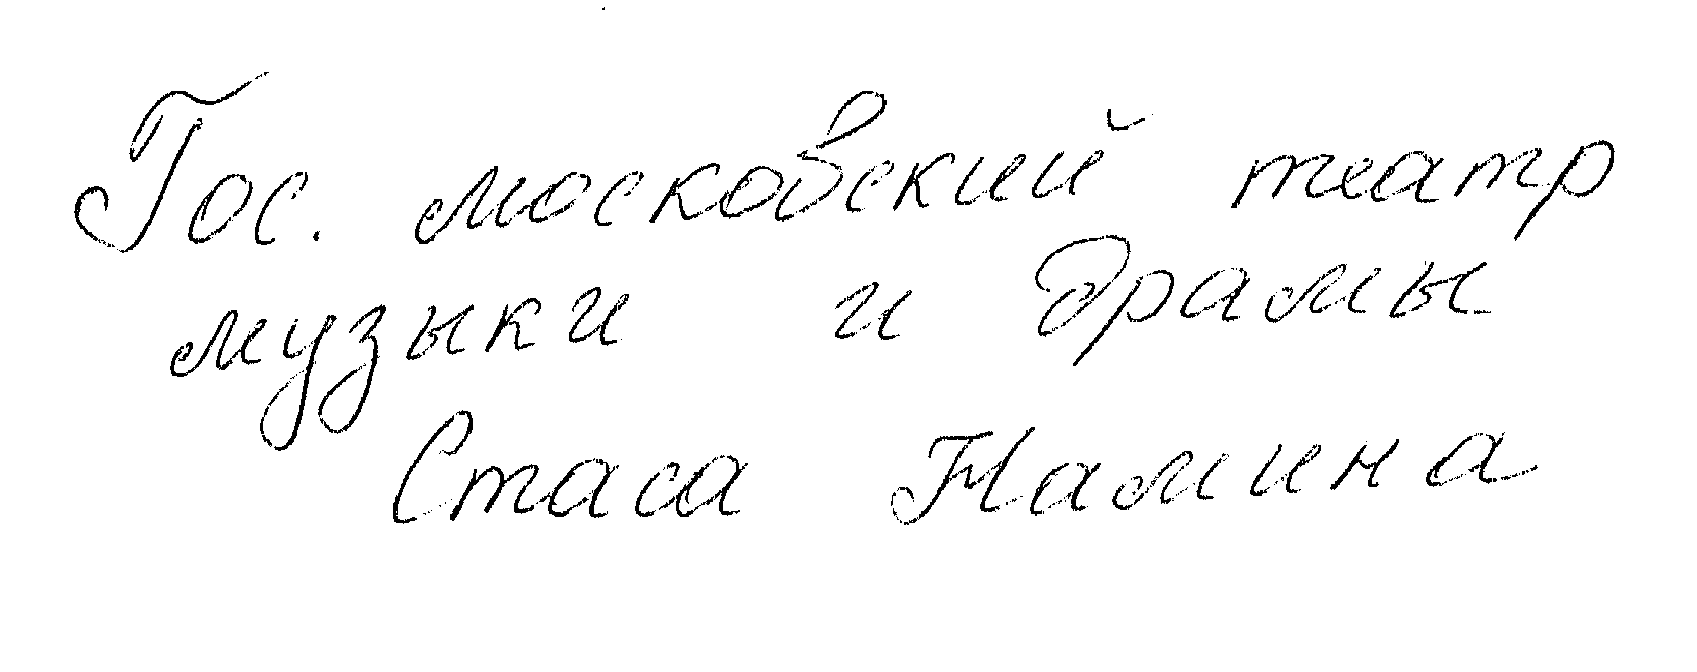 Гос. московский театр
музыки и драмы
Стаса Намина